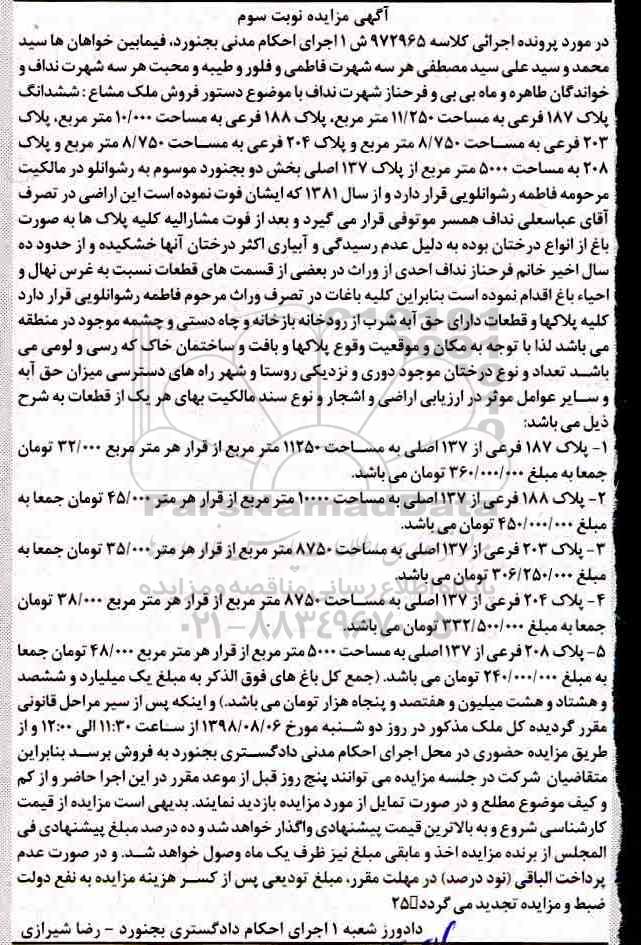 آگهی مزایده نوبت سوم
در مورد پرونده اجرائی کلاسه ۹۷۲۹۶۵ ش ۱ اجرای احکام مدنی بجنورد، فیمابین خواهان ها سید
محمد و سید علی سید مصطفی هر سه شهرت فاطمی و فلور و طیبه و محبت هر سه شهرت نداف و
خواندگان طاهره و ماه بی بی و فرحناز شهرت نداف با موضوع دستور فروش ملک مشاع : ششدانگ
پلاک ۱۸۷ فرعی به مساحت ۱۱/۲۵۰ متر مربع، پلاک ۱۸۸ فرعی به مساحت ۱۰/۰۰۰ متر مربع، پلاک
۲۰۳ فرعی به مساحت ۸/۷۵۰ متر مربع و پلاک ۲۰۴ فرعی به مساحت ۸/۷۵۰ متر مربع و پلاک
۲۰۸ به مساحت ۵۰۰۰ متر مربع از پلاک ۱۳۷ اصلی بخش دو بجنورد موسوم به رشوانلو در مالکیت
مرحومه فاطمه رشوانلویی قرار دارد و از سال ۱۳۸۱ که ایشان فوت نموده است این اراضی در تصرف
آقای عباسعلی نداف همسر موتوفی قرار می گیرد و بعد از فوت مشارالیه کلیه پلاک ها به صورت
باغ از انواع درختان بوده به دلیل عدم رسیدگی و آبیاری اکثر درختان آنها خشکیده و از حدود ده
سال اخیر خانم فرحناز نداف احدی از وراث در بعضی از قسمت های قطعات نسبت به غرس نهال و
احیاء باغ اقدام نموده است بنابراین کلیه باغات در تصرف وراث مرحوم فاطمه رشوانلویی قرار دارد
کلیه پلاکها و قطعات دارای حق آبه شرب از رودخانه بازخانه و چاه دستی و چشمه موجود در منطقه
می باشد لذا با توجه به مکان و موقعیت وقوع پلاکها و بافت و ساختمان خاک که رسی و لومی می
باشد تعداد و نوع درختان موجود دوری و نزدیکی روستا و شهر راه های دسترسی میزان حق آبه
و سایر عوامل موثر در ارزیابی اراضی و اشجار و نوع سند مالکیت بهای هر یک از قطعات به شرح
ذیل می باشد:
۱- پلاک ۱۸۷ فرعی از ۱۳۷ اصلی به مساحت ۱۱۲۵۰ متر مربع از قرار هر متر مربع ۳۲/۰۰۰ تومان
جمعا به مبلغ ۳۶۰/۰۰۰/۰۰۰ تومان می باشد.
۲- پلاک ۱۸۸ فرعی از ۱۳۷ اصلی به مساحت ۱۰۰۰۰ متر مربع از قرار هر متر ۴۵/۰۰۰ تومان جمعا به
مبلغ ۴۵۰/۰۰۰/۰۰۰ تومان می باشد.
۳- پلاک ۲۰۳ فرعی از ۱۳۷ اصلی به مساحت ۸۷۵۰ متر مربع از قرار هر متر ۳۵/۰۰۰ تومان جمعا به
مبلغ ۳۰۶/۲۵۰/۰۰۰ تومان می باشد.
۴- پلاک ۲۰۴ فرعی از ۱۳۷ اصلی به مساحت ۸۷۵۰ متر مربع از قرار هر متر مربع ۳۸/۰۰۰ تومان
جمعا به مبلغ ۳۳۲/۵۰۰/۰۰۰ تومان می باشد.
۵- پلاک ۲۰۸ فرعی از ۱۳۷ اصلی به مساحت ۵۰۰۰ متر مربع از قرار هر متر مربع ۴۸/۰۰۰ تومان جمعا
به مبلغ ۲۴۰/۰۰۰/۰۰۰ تومان می باشد. (جمع کل باغ های فوق الذکر به مبلغ یک میلیارد و ششصد
و هشتاد و هشت میلیون و هفتصد و پنجاه هزار تومان می باشد.) و اینکه پس از سیر مراحل قانونی
مقرر گردیده کل ملک مذکور در روز دو شنبه مورخ ۱۳۹۸/۰۸/۰۶ از ساعت ۱۱:۳۰ الی ۱۲:۰۰ و از
طریق مزایده حضوری در محل اجرای احکام مدنی دادگستری بجنورد به فروش برسد بنابراین
متقاضیان شرکت در جلسه مزایده می توانند پنج روز قبل از موعد مقرر در این اجرا حاضر و از کم
و کیف موضوع مطلع و در صورت تمایل از مورد مزایده بازدید نمایند. بدیهی است مزایده از قیمت
کارشناسی شروع و به بالاترین قیمت پیشنهادی واگذار خواهد شد و ده درصد مبلغ پیشنهادی فی
المجلس از برنده مزایده اخذ و مابقی مبلغ نیز ظرف یک ماه وصول خواهد شد. و در صورت عدم
پرداخت الباقی (نود درصد) در مهلت مقرر، مبلغ تودیعی پس از کسر هزینه مزایده به نفع دولت
ضبط و مزایده تجدید می گردد ۲۵
دادورز شعبه ۱ اجرای احکام دادگستری بجنورد - رضا شیرازی
ParsNamadData
پایگاه اطلاع رسانی مناقصه و مزایده
۰۲۱-۸۸۳۴۹۶۷۰-۵